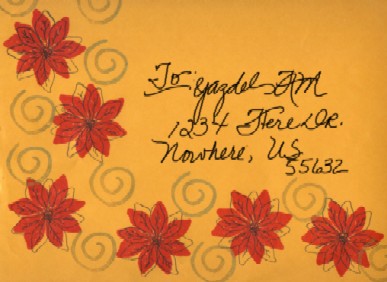 To: Yazdel, FM
1234 Here Dr.
Nowhere, US
55632